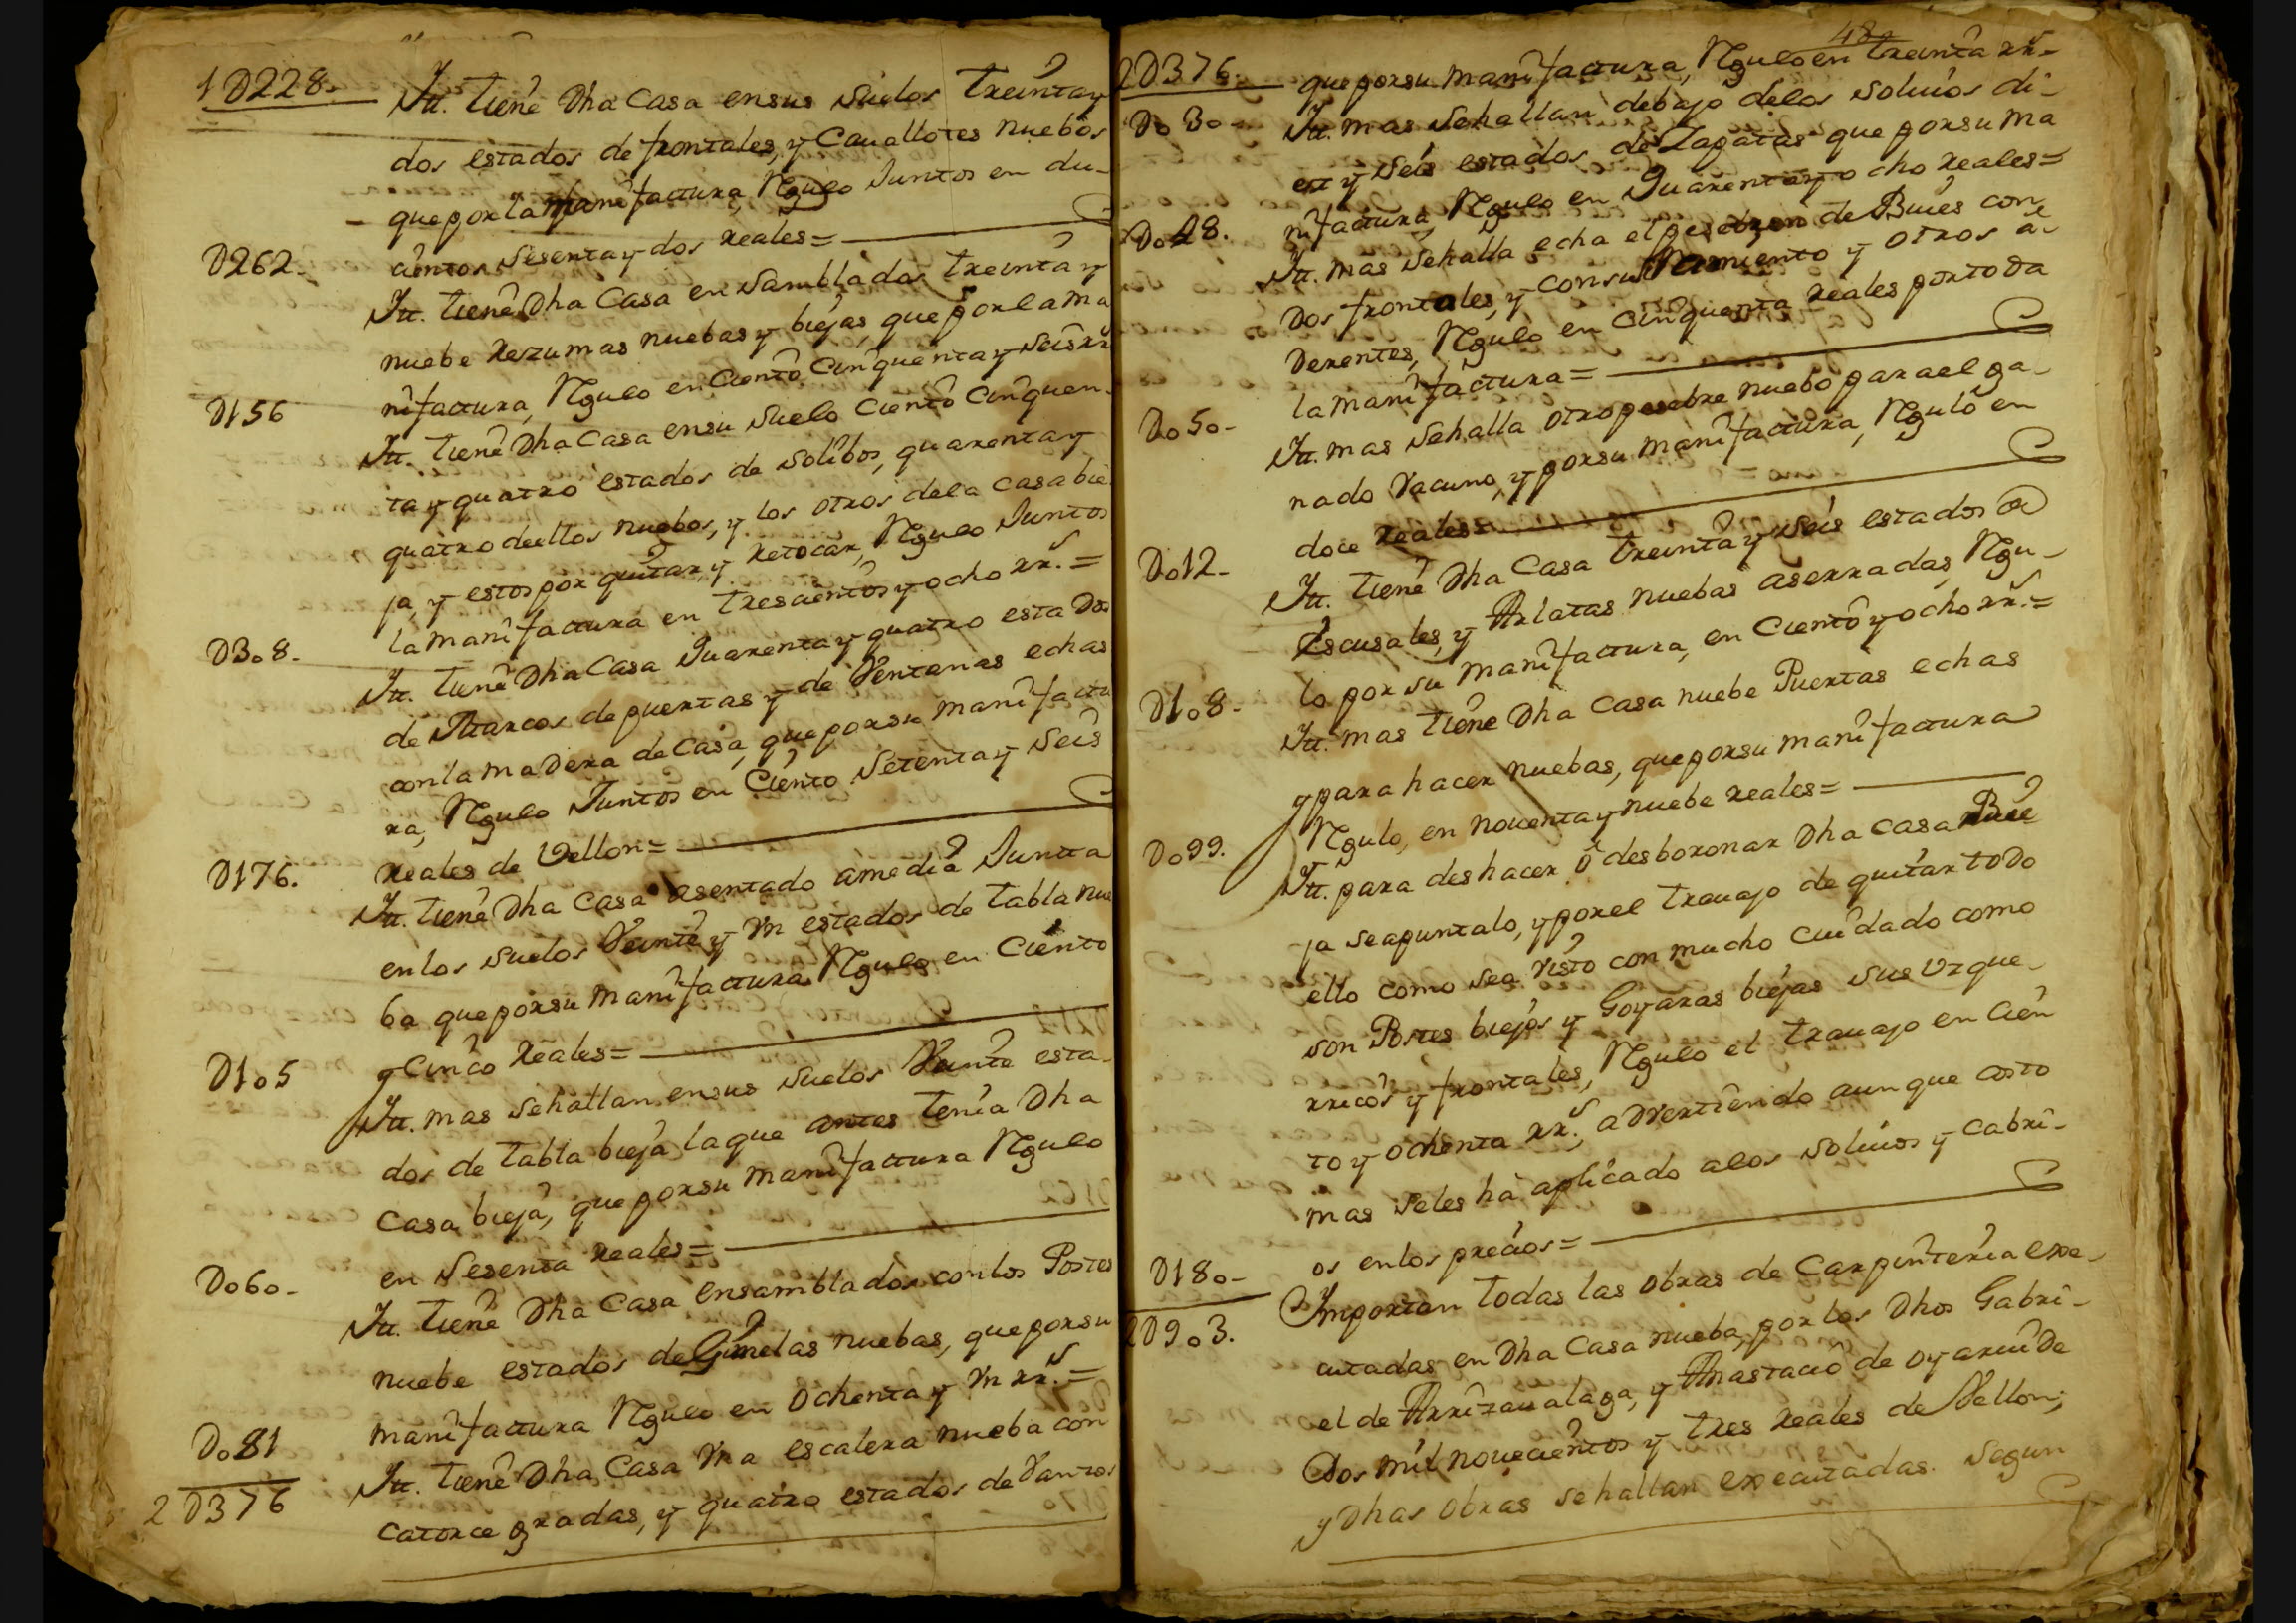 1 D228.
Itt. tiene Dha Casa en sus suelos treinta y
dos estados de frontales, y Cauallotes nuebos
que por la manifactura, Regulo Juntos en du-
cientos sesenta y dos reales=
D262.
Itt. tiene Dha Casa en samblados treinta y
nuebe rezumas nuebas y biejas, que por la ma
nifactura, Regulo en Ciento Cinquenta y seis rrs
D156
Itt. tiene Dha Casa en su suelo Ciento Cinquen-
ta y quatro estados de solibos, quarenta y
quatro de ellos nuebos, y los otros de la casa bie
ja, y estos por quitar, y retocar, Regulo Juntos
la manifactura en trescientos y ocho rrs. =
D3o8.
Itt. tiene Dha Casa Quarenta y quatro esta Dos
de Marcos de puertas y de Ventanas echas
con la maDera de Casa, que por su manifactu
ra, Regulo Juntos en Ciento setenta y seis
reales de Vellon=
D176.
Itt. tiene Dha Casa asentado a media Juntta
en los suelos Veinte y Vn estados de tabla nue
ba que por su manifactura Regulo en Ciento
y Cinco reales=
D1o5
Itt. mas se hallan en sus suelos Veinte esta-
dos de tabla bieja la que antes tenia Dha
Casa bieja, que por su manifactura Regulo
en sesenta reales=
Do6o-
Itt. tiene Dha Casa ensamblados con los Postes
nuebe estados de nuebas, que por su
manifactura Regulo en ochenta y Vn rrs. =
Do81
Itt. tiene Dha Casa Vna escalera nueba con
2 D376
catorce gradas, y quatro estados de Vanzos
48
2D376.
que por su manifactura, Regulo en treinta rrs=
Do3o-
Itt. mas se hallan debajo de los soliuos di-
ez y seis estados de Zapatas que por su ma
nifactura, Regulo en Quarenta y ocho reales=
Do48.
Itt. mas se halla echa el pesebren de Buies con
Dos frontales, y con su y otros a-
Derentes, Regulo en Cinquenta reales por toDa
la manifactura=
Do5o-
Itt. mas se halla otro pesebre nuebo para el ga-
nado Vacuno, y por su manifactura, Regulo en
doce reales=
Do12-
Itt. tiene Dha Casa treinta y seis estados de
Escusales, y Arlatas nuebas aserradas, Regu-
lo por su manifactura, en Ciento y ocho rrs.=
D1o8-
Itt. mas tiene Dha Casa nuebe Puertas echas
y para hacer nuebas, que por su manifactura
Regulo, en nouenta y nuebe reales=
Do99.
Itt. para deshacer ô desboronar Dha Casa Bie
ja se apuntalo, y por el trauajo de quitar toDo
ello como sea Visto con mucho cuidado como
son Postes biejos y Goyaras biejas sus Vrque-
rricos y frontales, Regulo el trauajo en Cien
to y ochenta rrs., aDvertiendo aunque costo
mas se les ha aplicado a los soliuos y Cabri-
os en los precios=
D18o-
Importan todas las obras de Carpinteria exe-
2D9o3.
cutadas en Dha Casa nueba, por los Dhos Gabri-
el de Arrizaualaga, y Anastacio de oyaruiDe
Dos mil nouecientos y tres reales de Vellon;
y Dhas obras se hallan executadas. segun